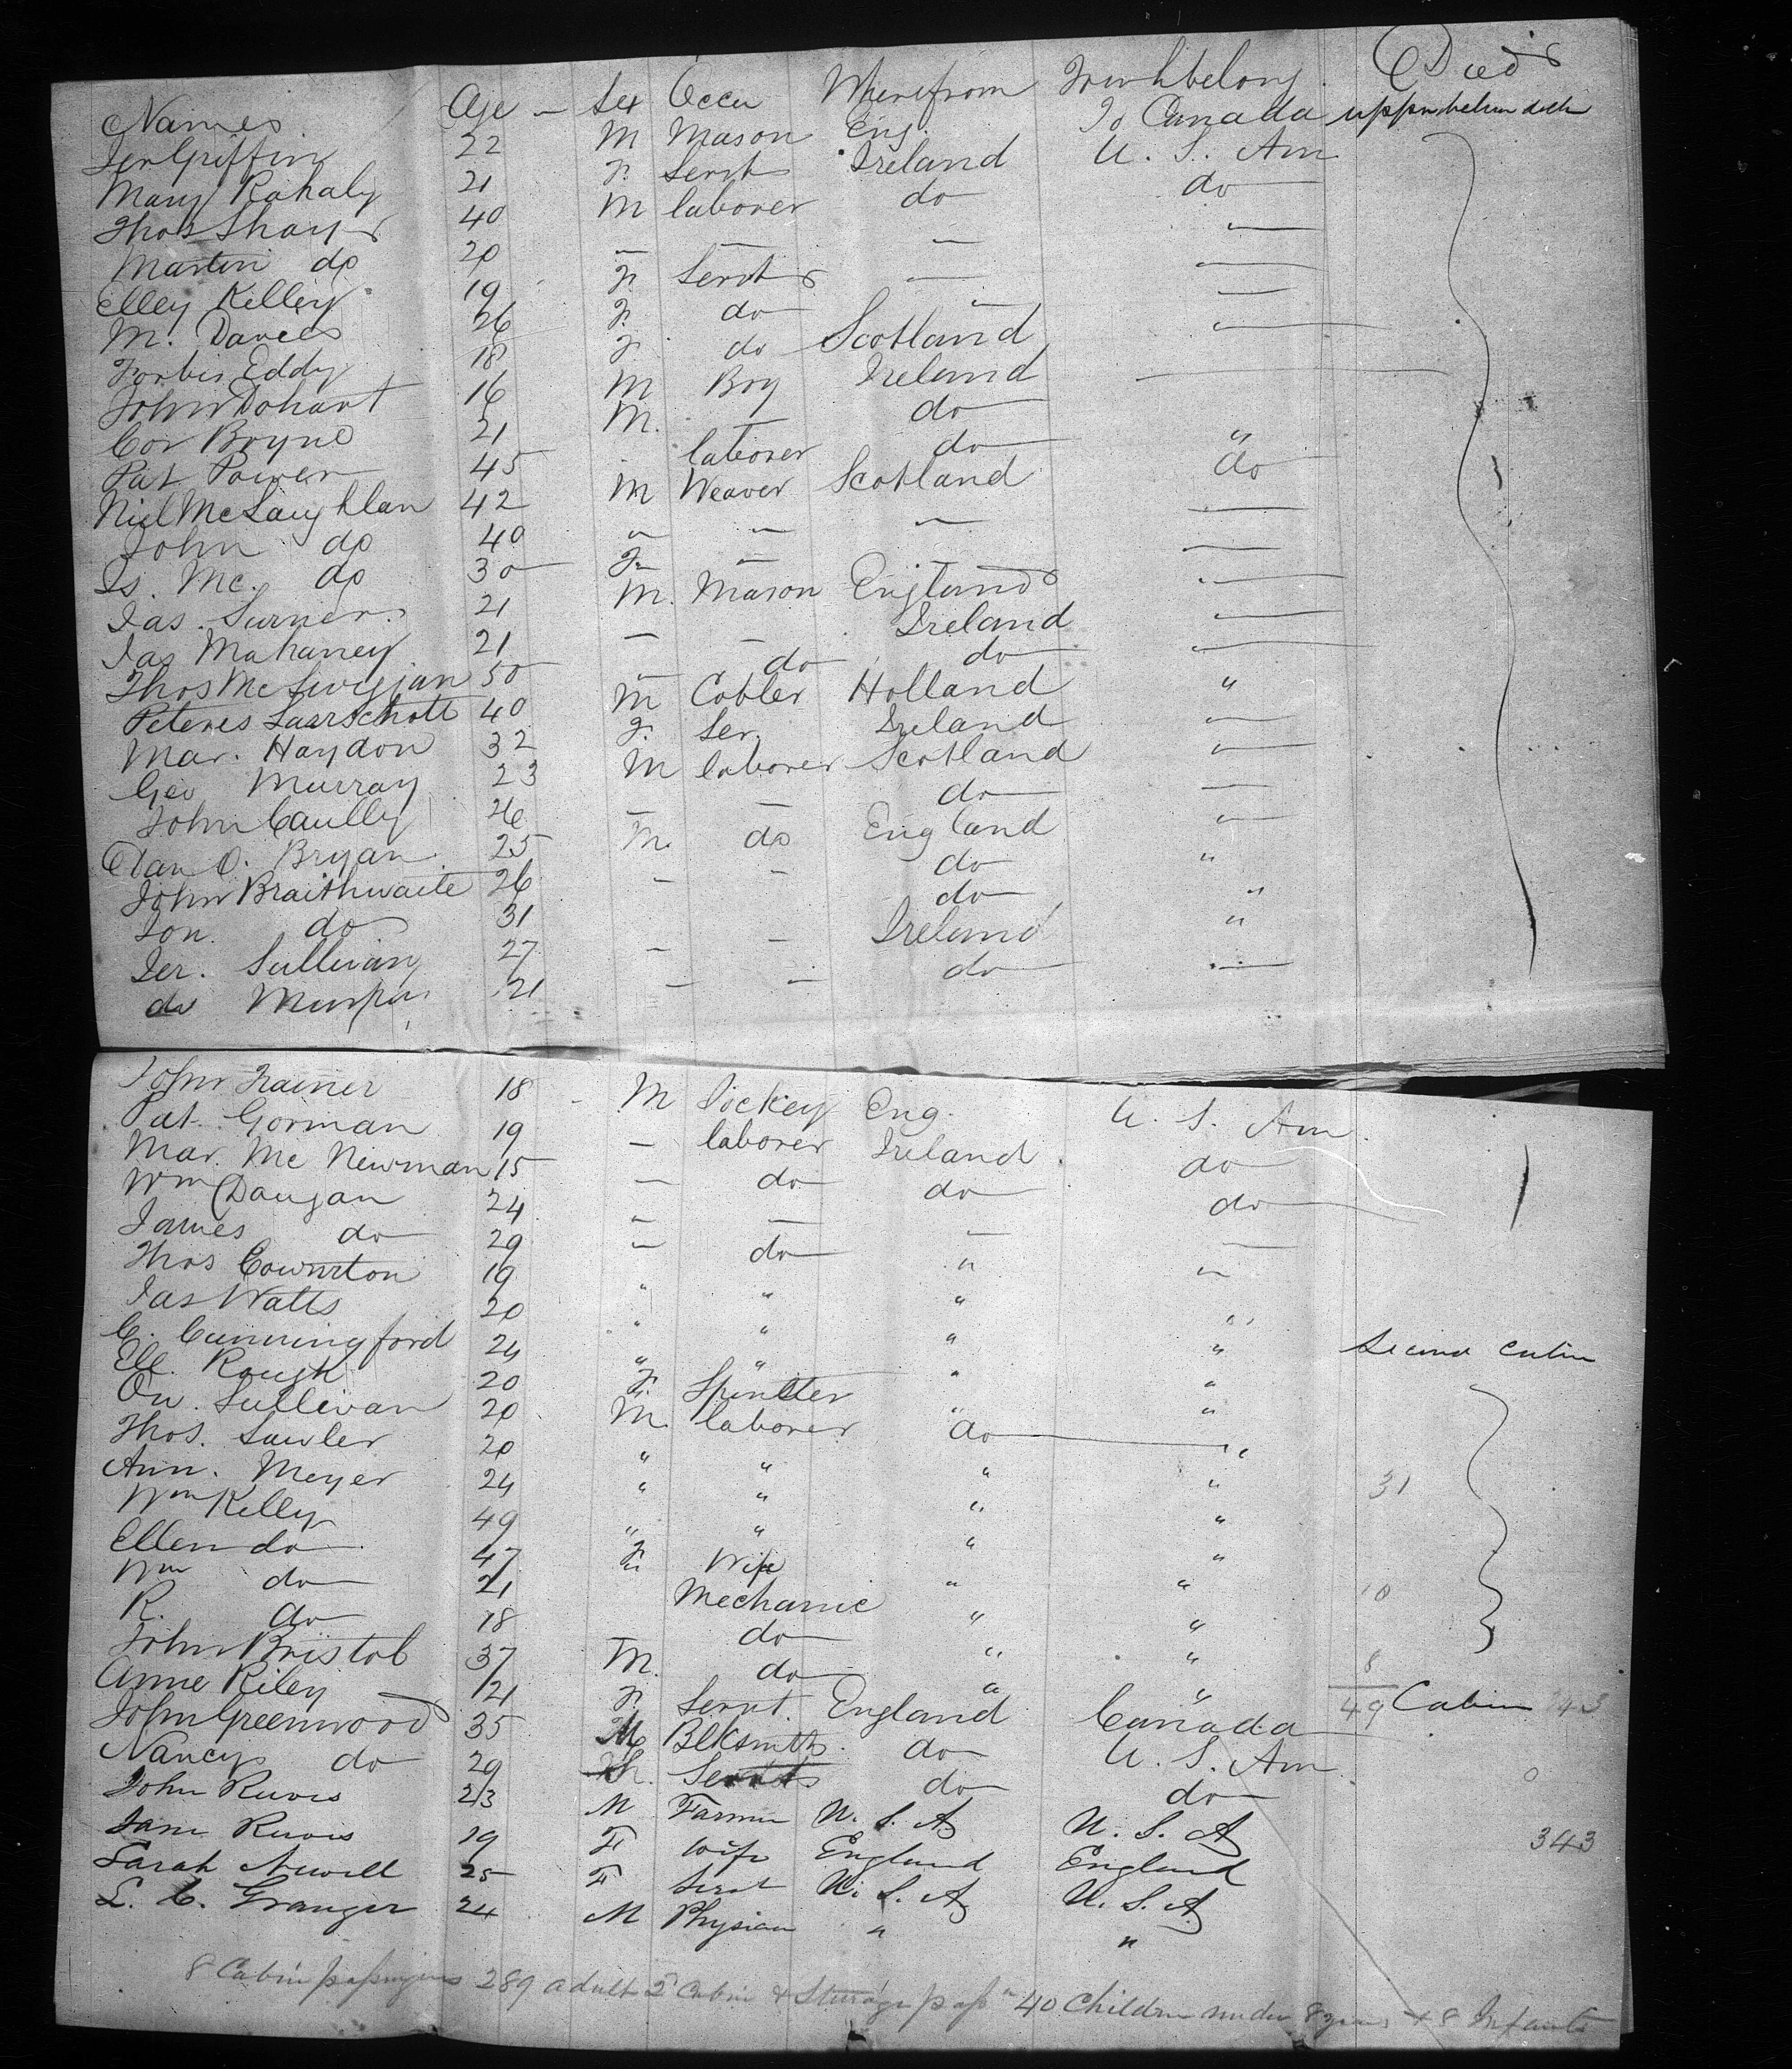 Names Age Sex Occu Wherefrom To wh belong Died
Jer Griffin 22 M Mason Eng. To Canada upper between deck
Mary Rahaly 21 F. Servt Ireland U. S. Am
Thos Shay 40 M laborer do do
Martin do 20 — — — —
Elley Kelley 19 F. Servt — —
M. Davees 26 F. do — —
Forbis Eddy 18 F. do Scotland —
John Dohart 16 M Boy Ireland —
Cor Bryne 21 M. — do
Pat Power 45 laborer do "
Niel McLaughlan 42 M Weaver Scotland do
John do 40 " — — —
Is. Mc. do 30 F. — — —
Jas. Surner 21 M. Mason England
Jas Mahaney 21 — — Ireland —
Thos 50 — do do —
Peteres Laarschott 40 M Cobler Holland "
Mar. Haydon 32 F. Ser. Ireland —
Geo Murray 23 M laborer Scotland —
John Caully 26 — — do —
Dan O. Bryan 25 M. do England —
John Braithwaite 26 — — do "
Jon. do 31 do "
Jer. Sullivan 27 — — Ireland "
do 21 — — do —
John Trainer 18 M Jockey Eng. U. S. Am.
Pat. Gorman 19 — laborer Ireland do
Mar. Mc Newman 15 — do do do
Wm Daugan 24 " — — —
James do 29 — do " "
Thos 19 " " "
Jas Watts 20 " " " "
C. Cunningford 24 " " " " Second Cabin
Ell. Rough 20 F. Spinster " "
Ow. Sullivan 20 M. laborer " "
Thos. Lawler 20 " " do "
Ann. Meyer 24 " " " " 31
Wm Kelly 49 " " " "
Ellen do 47 F. Wife " "
Wm do 21 Mechanic " " 10
R. do 18 do " "
John Bristol 37 M. do " " 8
Anne Riley 21 F. Servt. " " 49 Cabin 343
John Greenwood 35 M Blksmith England Canada
Nancy do 29 Servts do U. S. Am. 0
John Reeves 23 M Farmer do do
Jane Reeves 29 F Wife U. S. A U. S. A 343
Sarah Newell 25 F Servt England England
L. C. Granger 24 M Physician U. S. A U. S. A
" "
8 Cabin passengers 289 adult 2d Cabin & Steerage pass" 40 Children under 8 years & 8 Infants